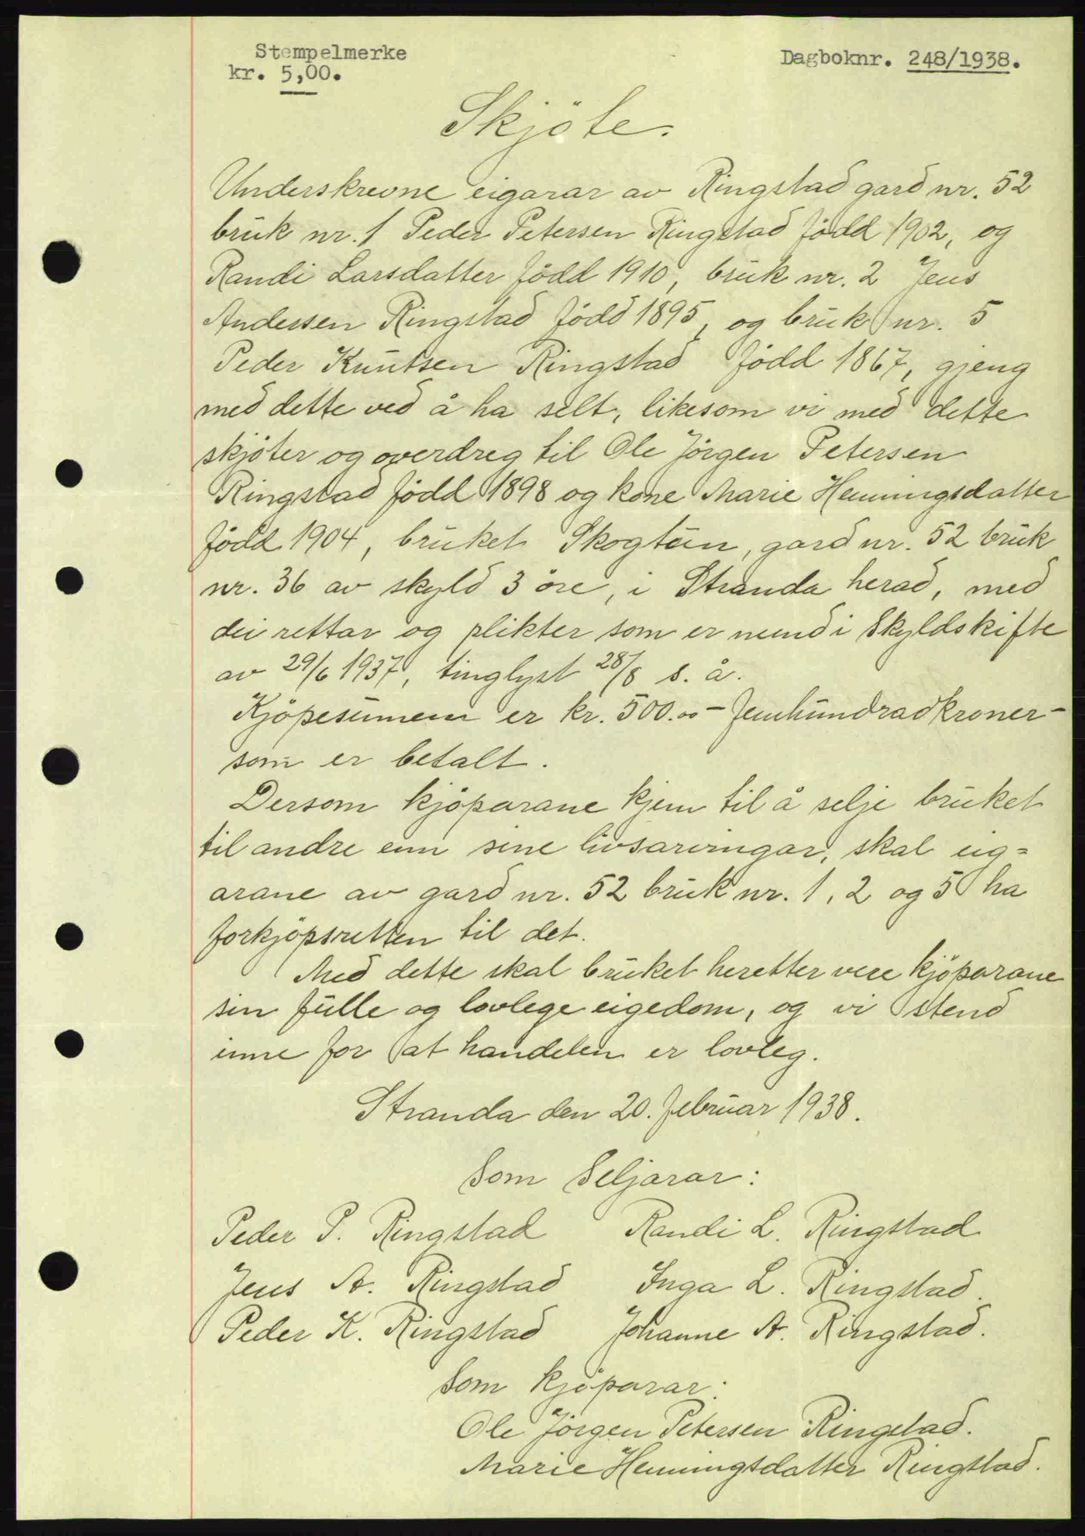 Stempelmerke
kr. 5,00.
Dagboknr. 248/1938.
Skjöte.
Underskrevne eigarar av Ringstad gard nr. 52
bruk nr. 1 Peder Petersen Ringstad född 1902, og
Randi Larsdatter född 1910, bruk nr. 2 Jens
Andessen Ringstad född 1895, og bruk nr. 5
Peder Knutsen Ringstad född 1867, gjeng
med dette ved å ha selt, likesom vi med dette
skjöter og overdreg til Ole Jörgen Petersen
Ringstad född 1898 og kone Marie Henningsdatter
född 1904, bruket Skogtun, gard nr. 52 bruk
nr. 36 av skyld 3 öre, i Stranda herad, med
dei rettar og plikter som er nemnd i Skyldskifte
av 29/6 1937, tinglyst 28/8 s. å.
Kjöpesumen er kr. 500.00 - femhundradkroner -
som er betalt.
Dersom kjöparane kjem til å selje bruket
til andre enn sine livsarvingar, skal eig=
arane av gard nr. 52 bruk nr. 1, 2 og 5 ha
forkjöpsretten til det.
Med dette skal bruket heretter vere kjöparane
sin fulle og lovlege eigedom, og vi stend
inne for at handelen er lovleg.
Stranda den 20. februar 1938.
Som Seljarar:
Peder P. Ringstad Randi L. Ringstad
Jens A. Ringstad Inga L. Ringstad.
Peder K. Ringstad Johanne A. Ringstad.
Som kjöparar:
Ole Jörgen Petersen Ringstad.
Marie Henningsdatter Ringstad.